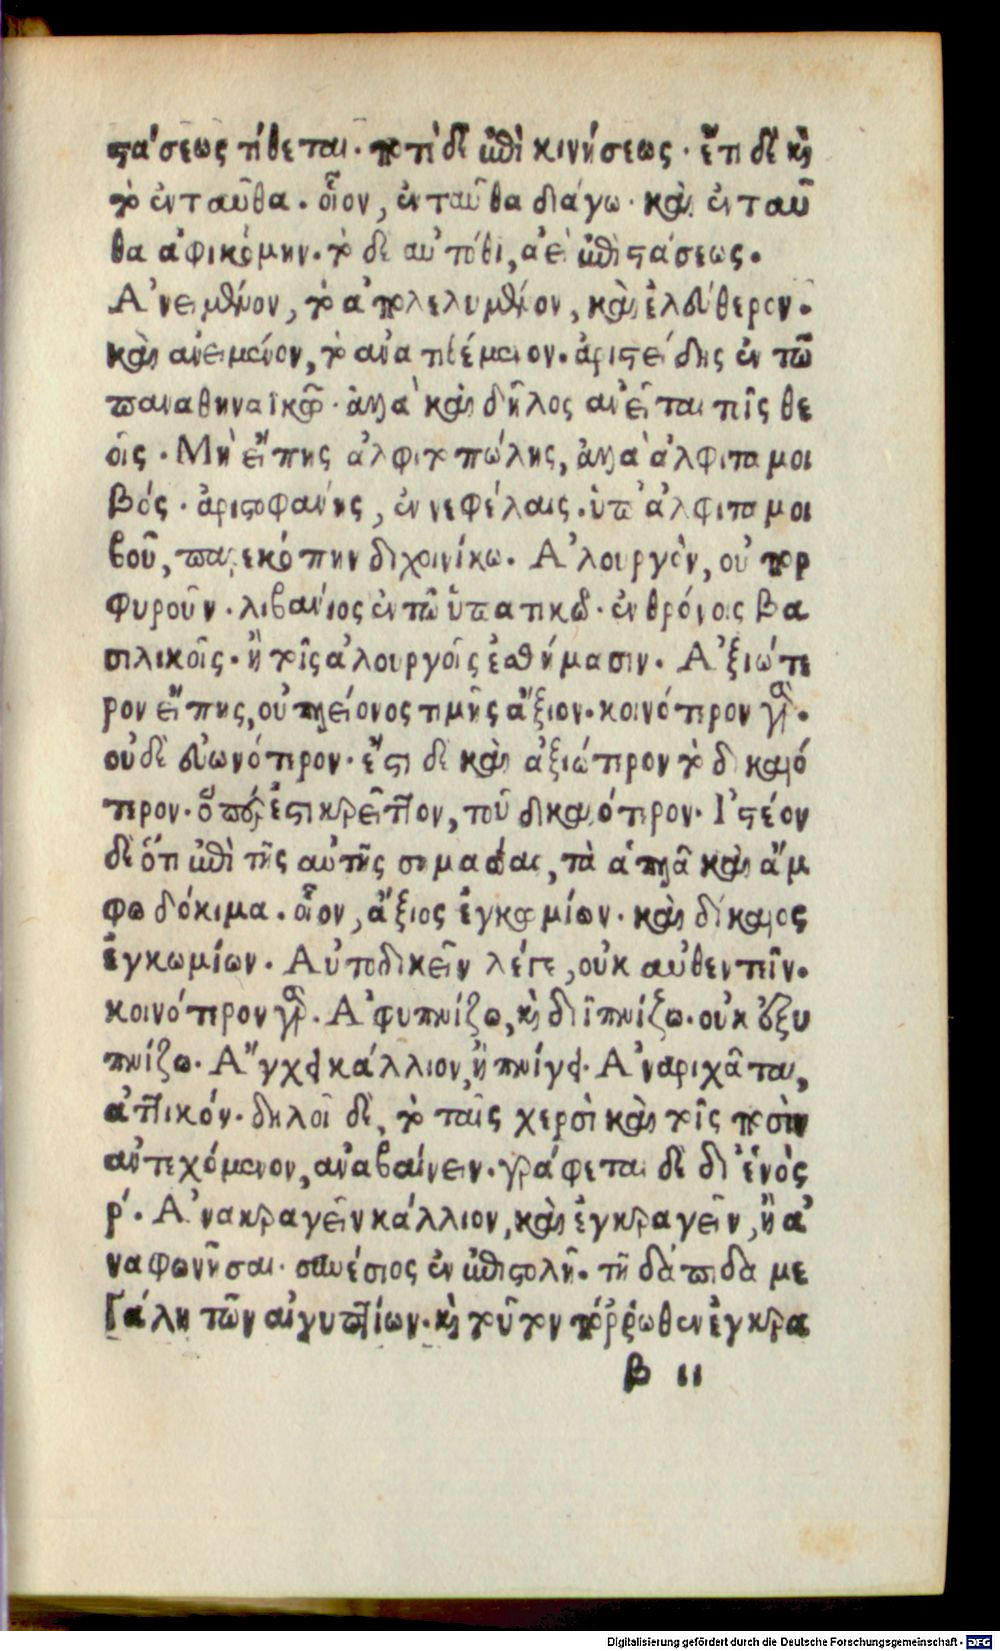 στάσεως τίθεται. ποτὲ δὲ ἐπὶ κινήσεως. ἔτι δὲ καὶ
τὸ ἐνταῦθα. οἷον, ἐνταῦθα διάγω. καὶ ἐνταῦ
θα ἀφικόμην. τὸ δὲ αὐτόθι, ἀεὶ ἐπὶ στάσεως.
Ἀνειμένον, τὸ ἀπολελυμένον, καὶ ἐλεύθερον.
καὶ ἀνειμένον, τὸ ἀνατιθέμενον. ἀριστείδης ἐν τῷ
παναθηναϊκῷ. ἀλλὰ καὶ δῆλος ἀνεῖται τοῖς θε
οῖς. Μὴ εἴπης ἀλφιτοπώλης, ἀλλὰ ἀλφιταμοι
βός. ἀριστοφάνης, ἐν νεφέλαις. ὑπ' ἀλφιταμοι
βοῦ, παρεκόπην διχοινίκω. Ἁλουργὸν, οὐ πορ
φυροῦν. λιβάνιος ἐν τῷ ὑπατικῷ. ἐν θρόνοις βα
σιλικοῖς. ἢ τοῖς ἁλουργοῖς ἐσθήμασιν. Ἀξιώτε
ρον εἴπης, οὐ πλείονος τιμῆς ἄξιον. κοινότερον γὰρ.
οὐδὲ εὐωνότερον. ἔστι δὲ καὶ ἀξιώτερον τὸ δικαιό
τερον. ὅπερ ἐστὶ κρεῖττον, τοῦ δικαιότερον. Ἰστέον
δὲ ὅτι ἐπὶ τῆς αὐτῆς σημασίας, τὰ ἁπλᾶ καὶ ἄμ
φω δόκιμα. οἷον, ἄξιος ἐγκωμίων. καὶ δίκαιος
ἐγκωμίων. Αὐτοδικεῖν λέγε, οὐκ αὐθεντεῖν.
κοινότερον γὰρ. Ἀφυπνίζω, καὶ διϋπνίζω. οὐκ ἐξυ
πνίζω. Ἄγχει κάλλιον, ἢ πνίγει. Ἀναριχᾶται,
ἀττικόν. δηλοῖ δὲ, τὸ ταῖς χερσὶ καὶ τοῖς ποσὶν
ἀντεχόμενον, ἀναβαίνειν. γράφεται δὲ δι' ἑνὸς
ρ. Ἀνακραγεῖν κάλλιον, καὶ ἐγκραγεῖν, ἢ ἀ
ναφωνῆσαι. συνέσιος ἐν ἐπιστολῇ. τῇ δάπιδα με
γάλη τῶν αἰγυπτίων. καὶ τοῦτον πόρρωθεν ἐγκρα
β ιι
Digitalisierung gefördert durch die Deutsche Forschungsgemeinschaft - DFG